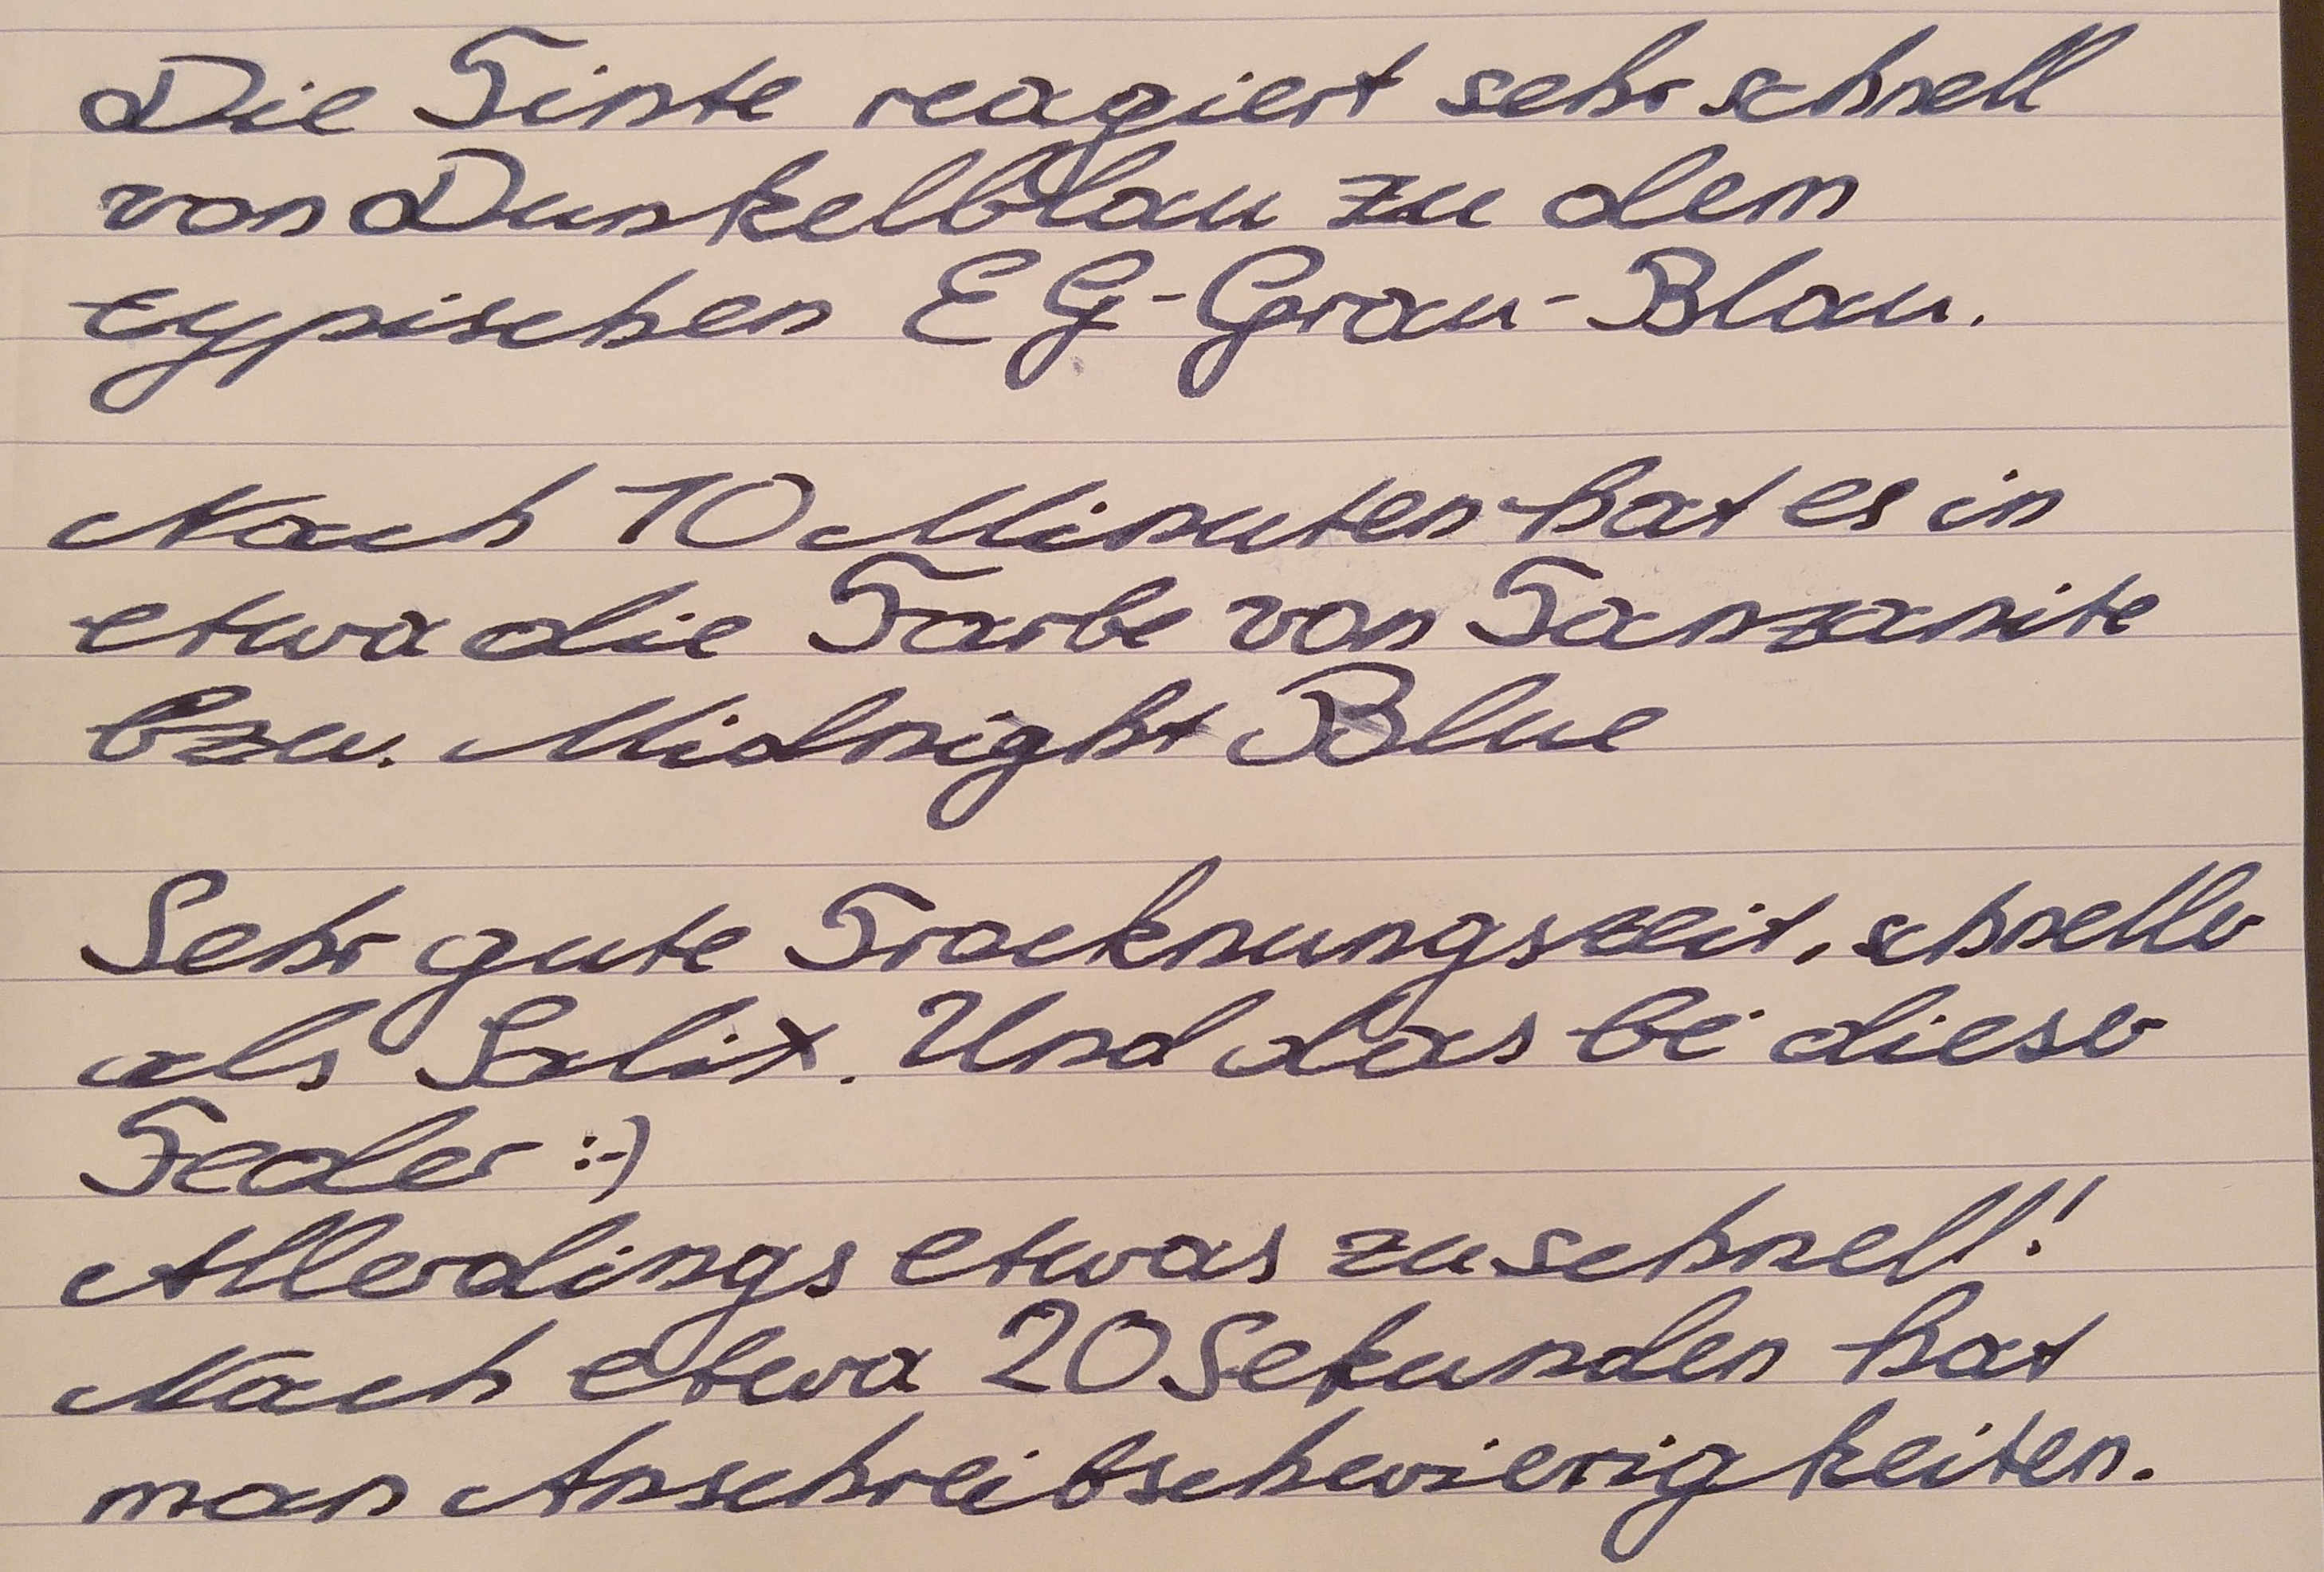 Die Tinte reagiert sehr schnell
von Dunkelblau zu dem
typischen EG-Grau-Blau.
Nach 10 Minuten hat es in
etwa die Farbe von Tanzanite
bzw. Midnight Blue
Sehr gute Trocknungszeit, schneller
als Salix. Und das bei dieser
Feder :-)
Allerdings etwas zu schnell!
Nach etwa 20 Sekunden hat
man Anschreibschwierigkeiten.